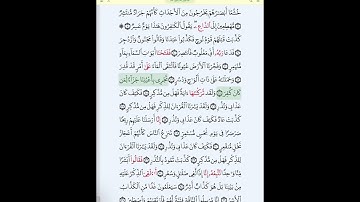 خُشَّعًا أَبْصَٰرُهُمْ يَخْرُجُونَ مِنَ ٱلْأَجْدَاثِ كَأَنَّهُمْ جَرَادٌ مُّنتَشِرٌ ٧
مُّهْطِعِينَ إِلَى ٱلدَّاعِ ۖ يَقُولُ ٱلْكَٰفِرُونَ هَٰذَا يَوْمٌ عَسِرٌ ٨ ۞
كَذَّبَتْ قَبْلَهُمْ قَوْمُ نُوحٍ فَكَذَّبُوا۟ عَبْدَنَا وَقَالُوا۟ مَجْنُونٌ وَٱزْدُجِرَ
٩ فَدَعَا رَبَّهُۥٓ أَنِّى مَغْلُوبٌ فَٱنتَصِرْ ١٠ فَفَتَحْنَآ أَبْوَٰبَ ٱلسَّمَآءِ بِمَآءٍ
مُّنْهَمِرٍ ١١ وَفَجَّرْنَا ٱلْأَرْضَ عُيُونًا فَٱلْتَقَى ٱلْمَآءُ عَلَىٰٓ أَمْرٍ قَدْ قُدِرَ
١٢ وَحَمَلْنَٰهُ عَلَىٰ ذَاتِ أَلْوَٰحٍ وَدُسُرٍ ١٣ تَجْرِى بِأَعْيُنِنَا جَزَآءً لِّمَن
كَانَ كُفِرَ ١٤ وَلَقَد تَّرَكْنَٰهَآ ءَايَةً فَهَلْ مِن مُّدَّكِرٍ ١٥ فَكَيْفَ كَانَ
عَذَابِى وَنُذُرِ ١٦ وَلَقَدْ يَسَّرْنَا ٱلْقُرْءَانَ لِلذِّكْرِ فَهَلْ مِن مُّدَّكِرٍ ١٧
كَذَّبَتْ عَادٌ فَكَيْفَ كَانَ عَذَابِى وَنُذُرِ ١٨ إِنَّآ أَرْسَلْنَا عَلَيْهِمْ رِيحًا
صَرْصَرًا فِى يَوْمِ نَحْسٍ مُّسْتَمِرٍّ ١٩ تَنزِعُ ٱلنَّاسَ كَأَنَّهُمْ أَعْجَازُ
نَخْلٍ مُّنقَعِرٍ ٢٠ فَكَيْفَ كَانَ عَذَابِى وَنُذُرِ ٢١ وَلَقَدْ يَسَّرْنَا ٱلْقُرْءَانَ
لِلذِّكْرِ فَهَلْ مِن مُّدَّكِرٍ ٢٢ كَذَّبَتْ ثَمُودُ بِٱلنُّذُرِ ٢٣ فَقَالُوٓا۟ أَبَشَرًا
مِّنَّا وَٰحِدًا نَّتَّبِعُهُۥٓ إِنَّآ إِذًا لَّفِى ضَلَٰلٍ وَسُعُرٍ ٢٤ أَءُلْقِىَ ٱلذِّكْرُ عَلَيْهِ
مِنۢ بَيْنِنَا بَلْ هُوَ كَذَّابٌ أَشِرٌ ٢٥ سَيَعْلَمُونَ غَدًا مَّنِ ٱلْكَذَّابُ
ٱلْأَشِرُ ٢٦ إِنَّا مُرْسِلُوا۟ ٱلنَّاقَةِ فِتْنَةً لَّهُمْ فَٱرْتَقِبْهُمْ وَٱصْطَبِرْ